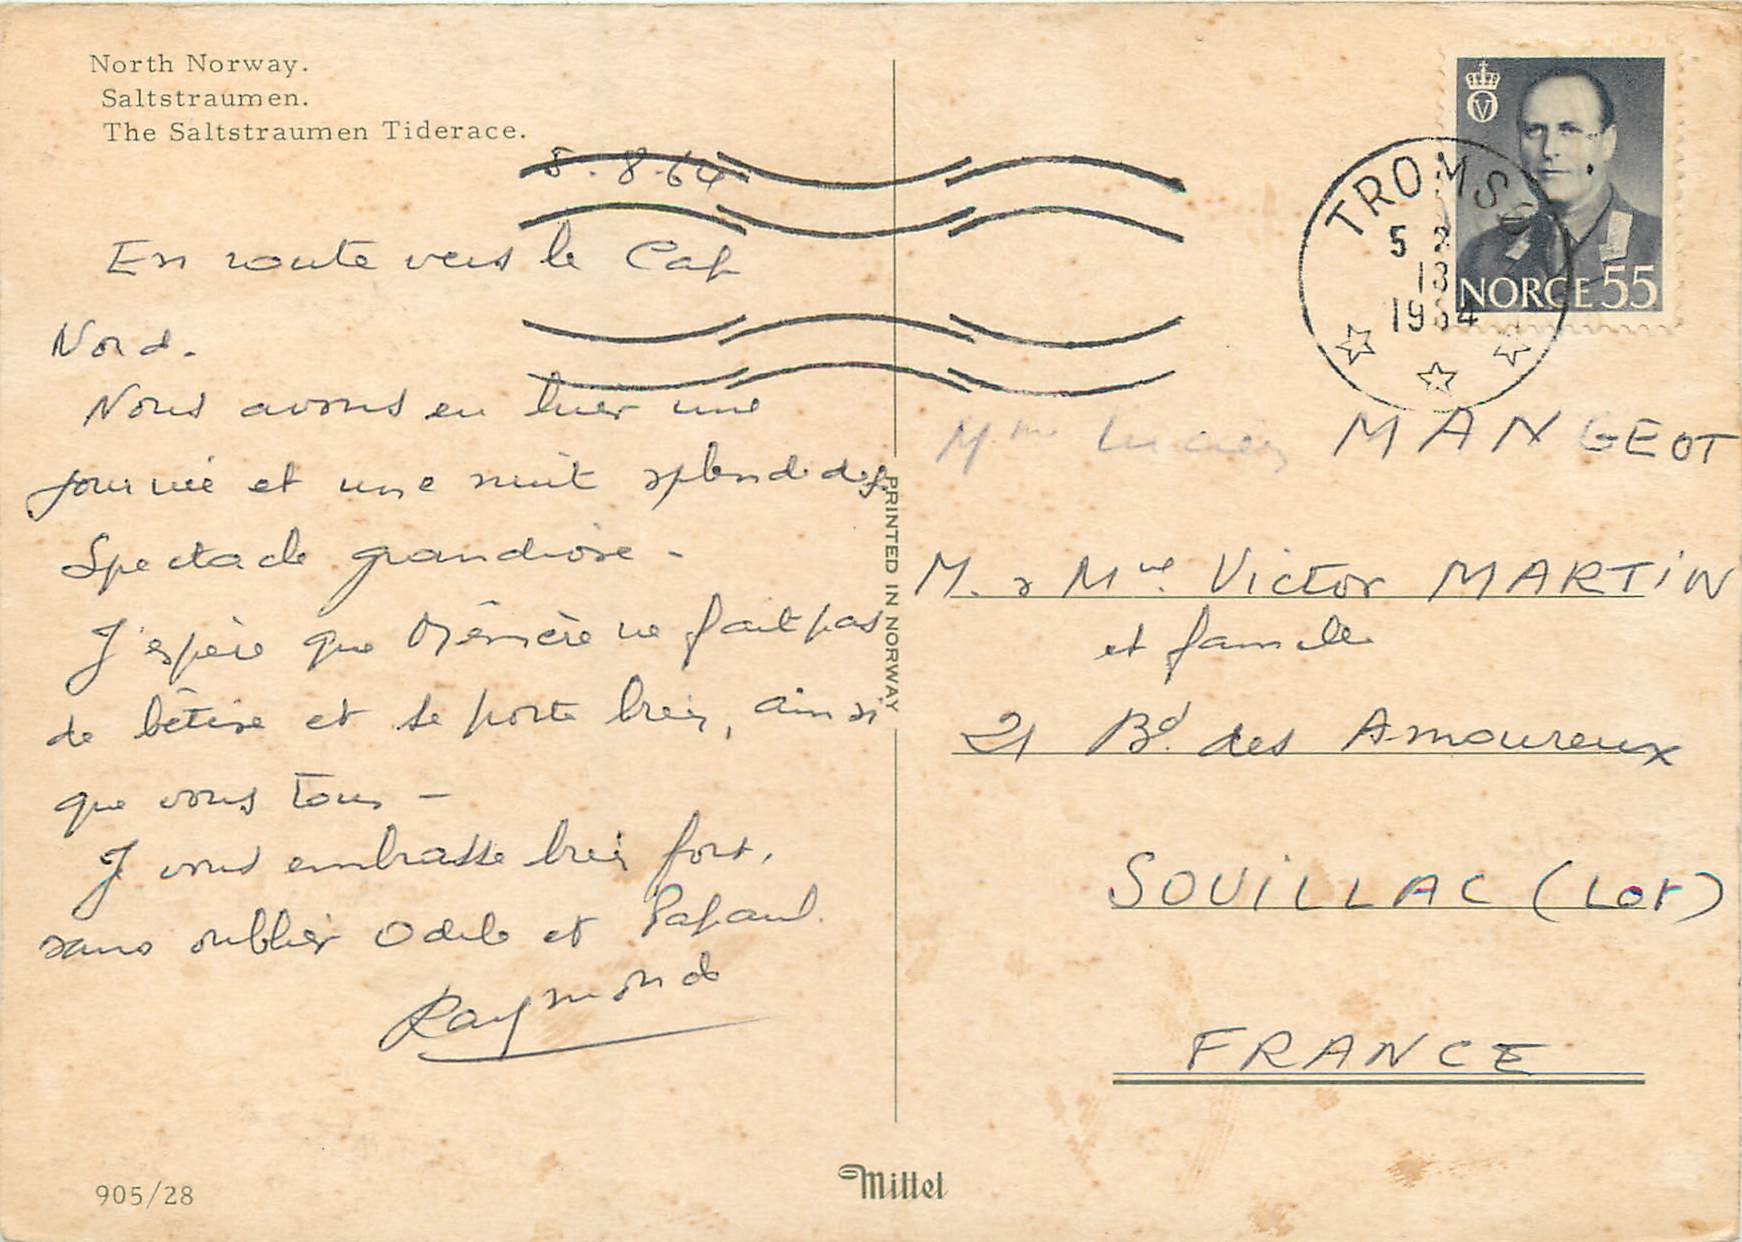 North Norway.
Saltstraumen.
The Saltstraumen Tiderace.
5.8.64
En route vers le Cap
Nord.
Nous avons eu hier une
journée et une nuit splendides.
Spectacle grandiose -
J'espère que Mémère ne fait pas
de bêtise et se porte bien, ainsi
que vous tous -
Je vous embrasse bien fort,
sans oublier Odile et Papaul.
Raymonde
905/28
PRINTED IN NORWAY
Mittel
TROMSØ
5 8
18
1964
NORGE 55
Mme Lucien MANGEOT
M. & Mme Victor MARTIN
et famille
21 Bd. des Amoureux
SOUILLAC (Lot)
FRANCE